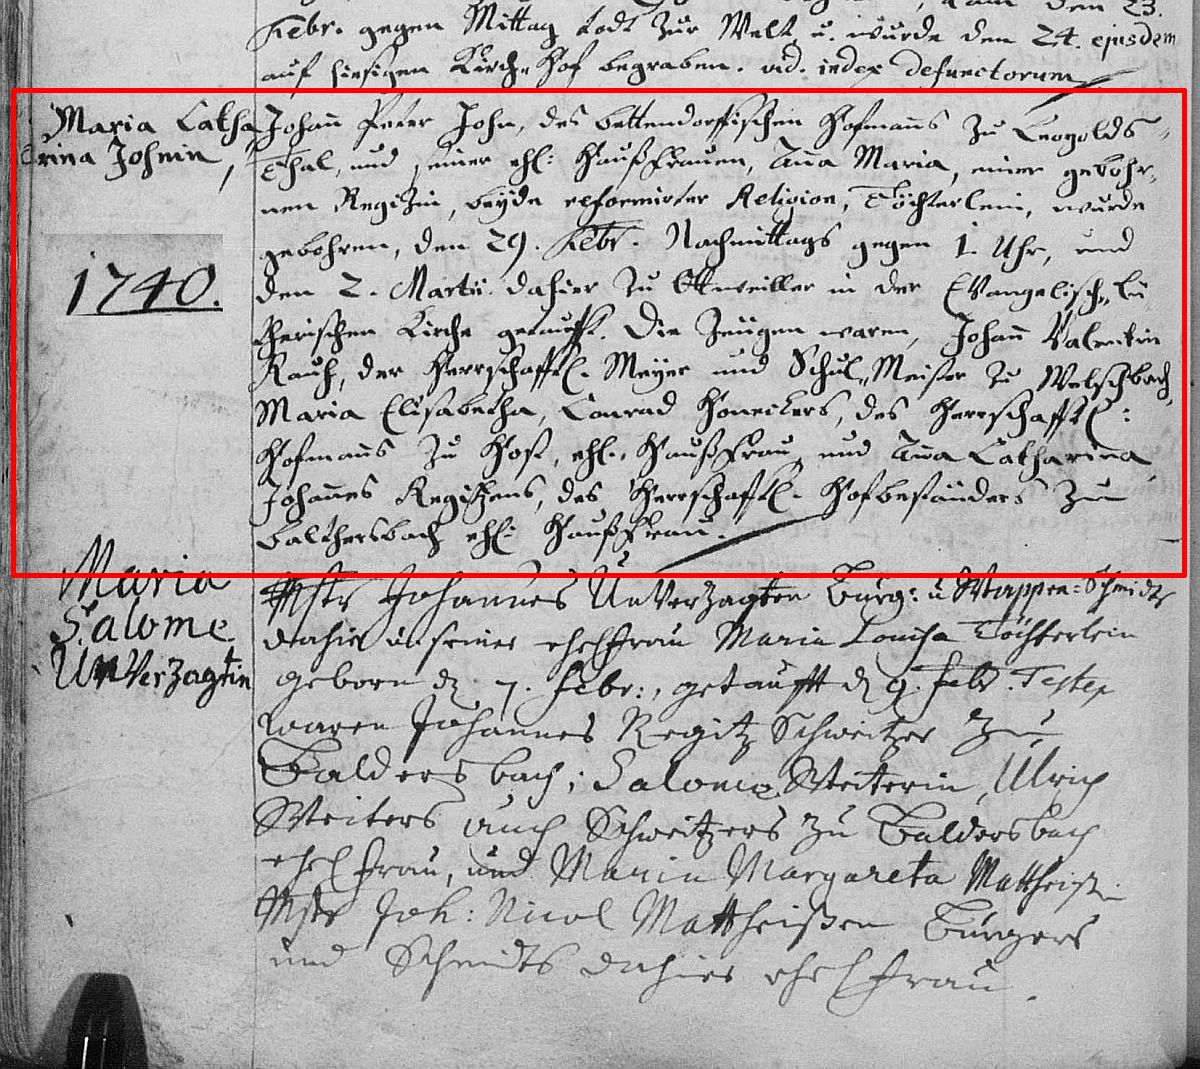 Febr. gegen Mittag todt zur Welt, u. wurde den 24. ejusdem
auf hiesigen Kirch-Hof begraben. vid. index defunctorum
Maria Catha
rina Johnin,
1740.
Johann Peter John, des bettendorffischen Hofmanns zu Leopolds-
Thal, und seiner ehl: Haußfrauen, Anna Maria, einer gebohr-
nen Regizin, beyde reformirter Religion, Töchterlein, wurde
gebohren, den 29. Febr. Nachmittags gegen 1. Uhr, und
den 2. Martii dahier zu Ottweiller in der Evangelisch-Lu
therischen Kirche getaufft. Die Zeügen waren, Johann Valentin
Rauch, der Herrschafftl. Meyer und Schul-Meister zu Welschbach,
Maria Elisabetha, Conrad Honeckers, des Herrschafftl:
Hofmanns zu Hof, ehl. Haußfrau, und Anna Catharina
Johannes Regitzens, des Herrschafftl. Hofbeständers zu
Balthersbach ehl: Haußfrau.
Maria
Salome
Unverzagtin
Mstr Johannes Unverzagten Burg: u Wappen-Schmidts
dahier u. seiner ehelfrau Maria Louisa Töchterlein
geboren d. 7. Febr:, getaufft d 9. Febr. Testes
waren Johannes Regitz Schweitzer zu
Baldersbach, Salome Weiterin, Ulrich
Weiters auch Schweitzers zu Baldersbach
ehelfrau, und Maria Margareta Mattheisin
Mstr Joh: Nicol Mattheißen Burgers
und Schmidts dahier ehelfrau.